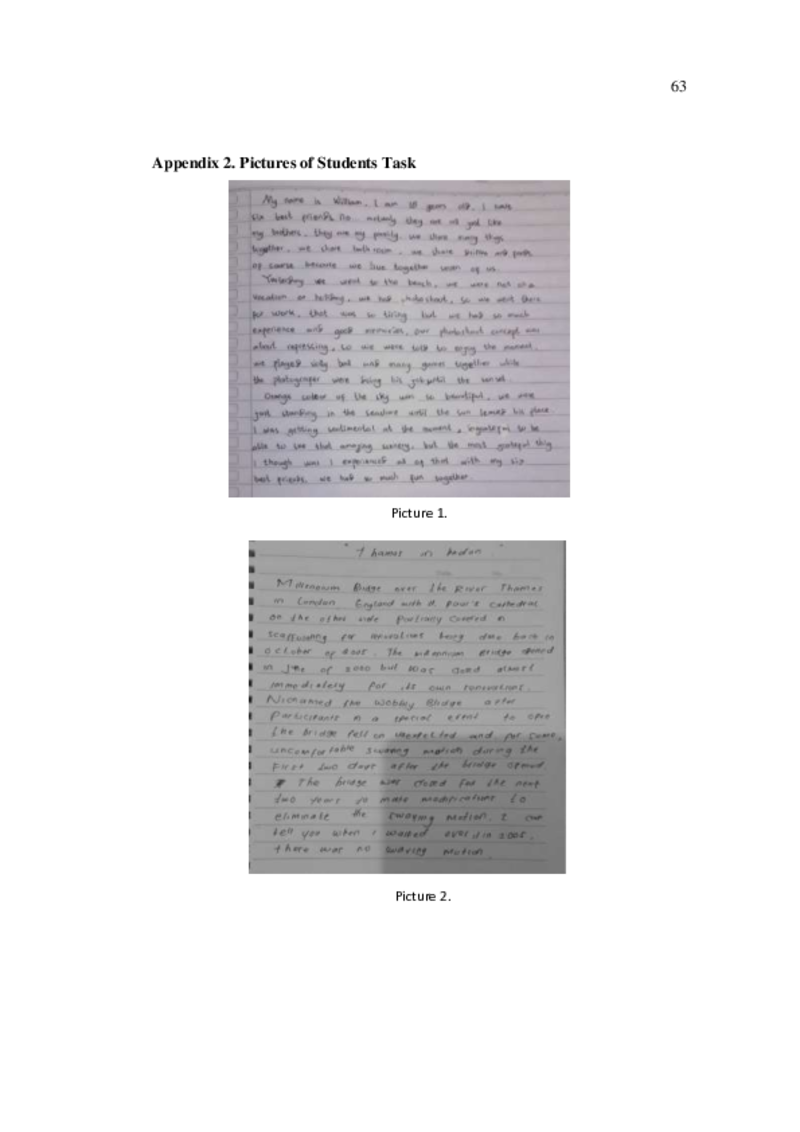 63
Appendix 2. Pictures of Students Task
My name is William. I am 18 years old. I have
six best friends no nobody they are all just like
my brothers, they are my family. we share many things
together, we share bathroom, we share
of course because we live together seven of us.
Yesterday we went to the beach, we were not on a
vacation or holiday, we had photoshoot, so we went there
for work, that was so tiring but we had so much
experience and good memories, our photoshoot concept was
about expressing, so we were told to enjoy the moment.
we played volly ball and many games together while
the photograper were doing his job until the sunset.
Orange colour of the sky was so beautiful, we are
just standing in the seashore until the sun his place
I was getting sentimental at the moment, to be
able to see that amazing scenery, but the most grateful thing
I though was I experienced all of that with my six
best friends. we had so much fun together.
Picture 1.
" Thames in "
Millennium Bridge over the River Thames
in London England with st. Paul's Cathedral
on the other side Partially Covered in
Scaffolding for renovations being done back in
October of 2005. The millennium Bridge opened
in June of 2000 but was closed almost
immediately for its own renovations.
Nicknamed the Wobbly Bridge after
Participants in a special event to open
the bridge fell an unexpected and for some,
uncomfortable swaying motion during the
First two days after the bridge opened
The bridge was closed for the next
two years to make modifications to
eliminate the swaying motion. I can
tell you when I walked over it in 2005.
there was no swaying motion
Picture 2.